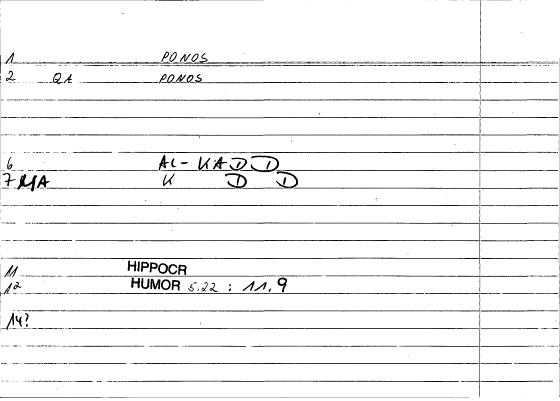 1 PONOS
2 QA PONOS
6 AL-KADD
7 MA K D D
11 HIPPOCR
12 HUMOR 5.22 : 11,9
14?